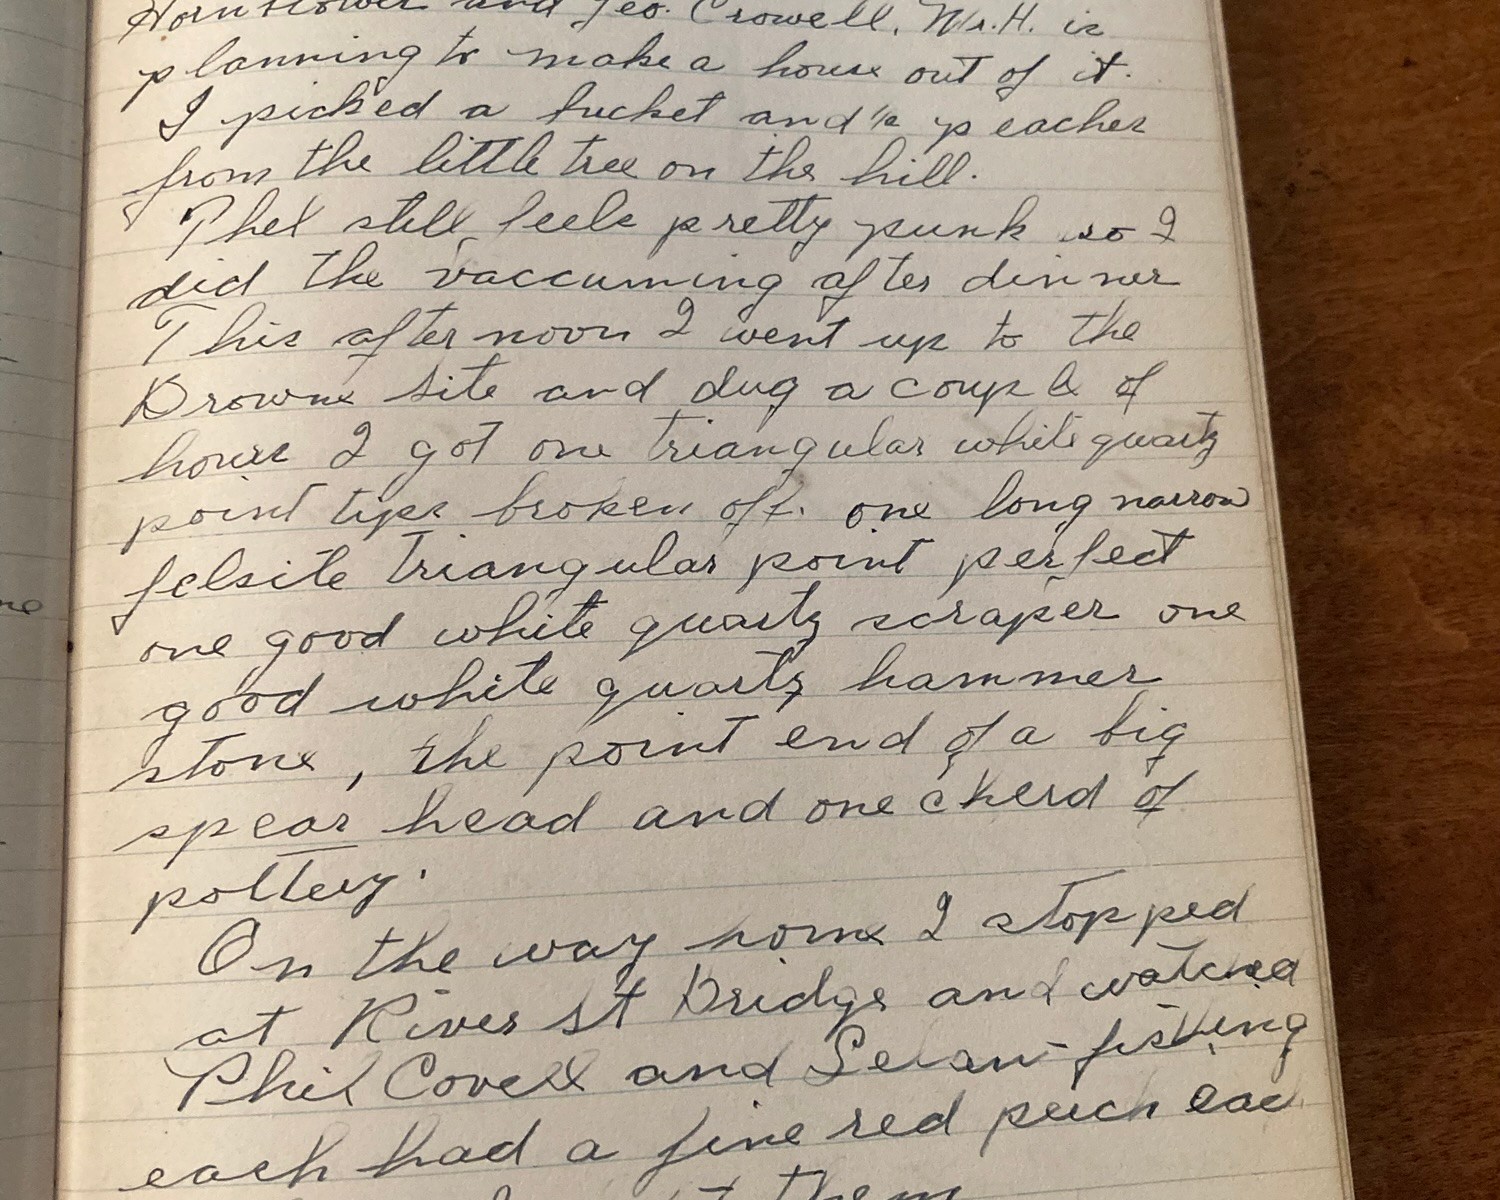 Hornblower and Geo. Crowell. Mr. H. is
planning to make a house out of it.
I picked a bucket and ½ peaches
from the little tree on the hill.
Phel still feels pretty punk so I
did the vaccuming after dinner
This afternoon I went up to the
Browne site and dug a couple of
hours I got one triangular white quartz
point tips broken off. one long narrow
felsite triangular point perfect
one good white quartz scraper one
good white quartz hammer
stone, the point end of a big
spear head and one sherd of
pottery.
On the way home I stopped
at River St Bridge and watched
Phil Covell and fishing
each had a fine red perch
them